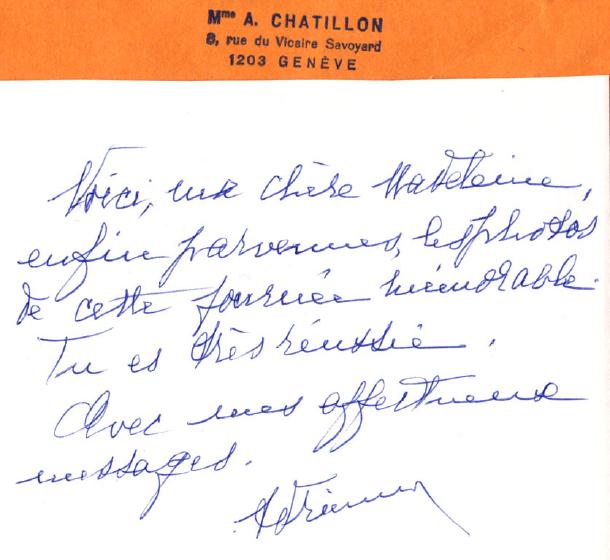 Mme A. CHATILLON
8, rue du Vicaire Savoyard
1203 GENÈVE
Voici, ma chère Madeleine,
enfin parvenues, les photos
de cette journée mémorable.
Tu es très réussie.
Avec mes affectueux
messages.
Adrienne